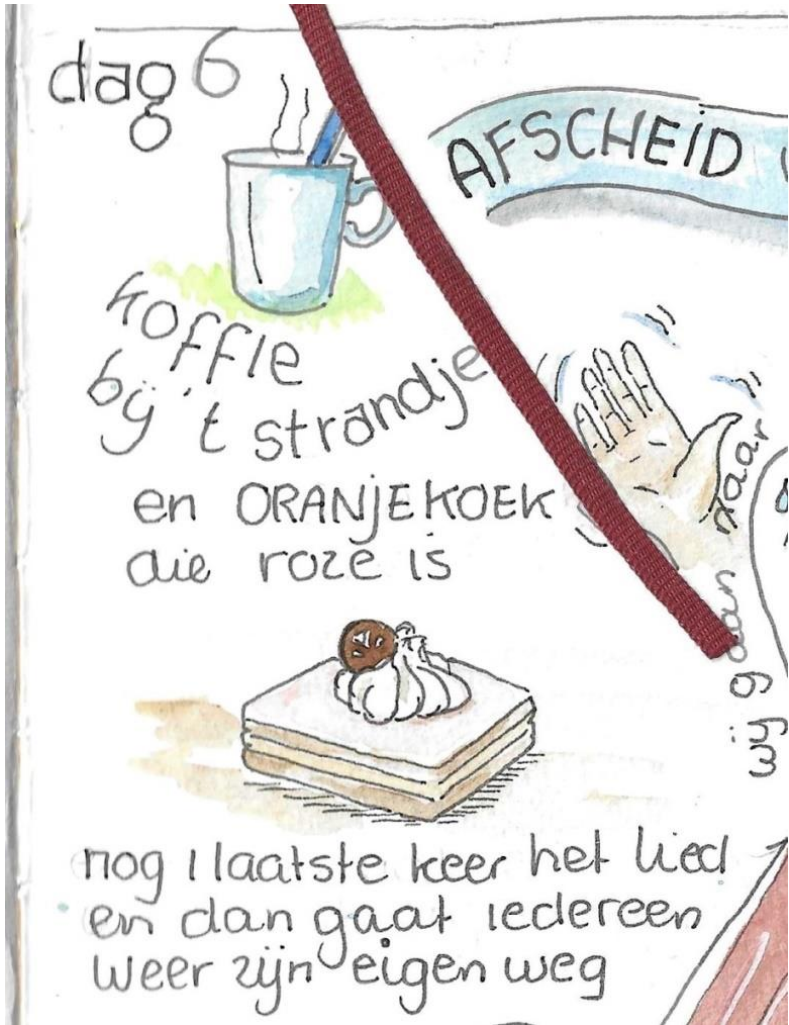 dag 6
AFSCHEID
koffie
bij 't strandje
en ORANJEKOEK
die roze is
wij gaan naar
nog 1 laatste keer het lied
en dan gaat iedereen
weer zijn eigen weg